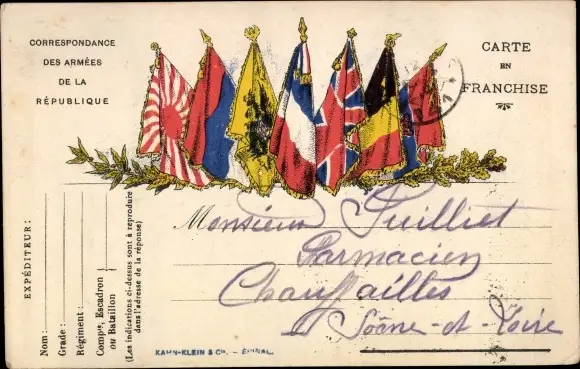 CORRESPONDANCE
DES ARMÉES
DE LA
RÉPUBLIQUE
CARTE
EN
FRANCHISE
EXPÉDITEUR:
Nom:
Grade:
Régiment:
Compie, Escadron
ou Bataillon
(Les indications ci-dessus sont à reproduire
dans l'adresse de la réponse)
Monsieur
Farmacien
Chauffailles
Saône-et-Loire
KAHN-KLEIN & Cie. - ÉPINAL.